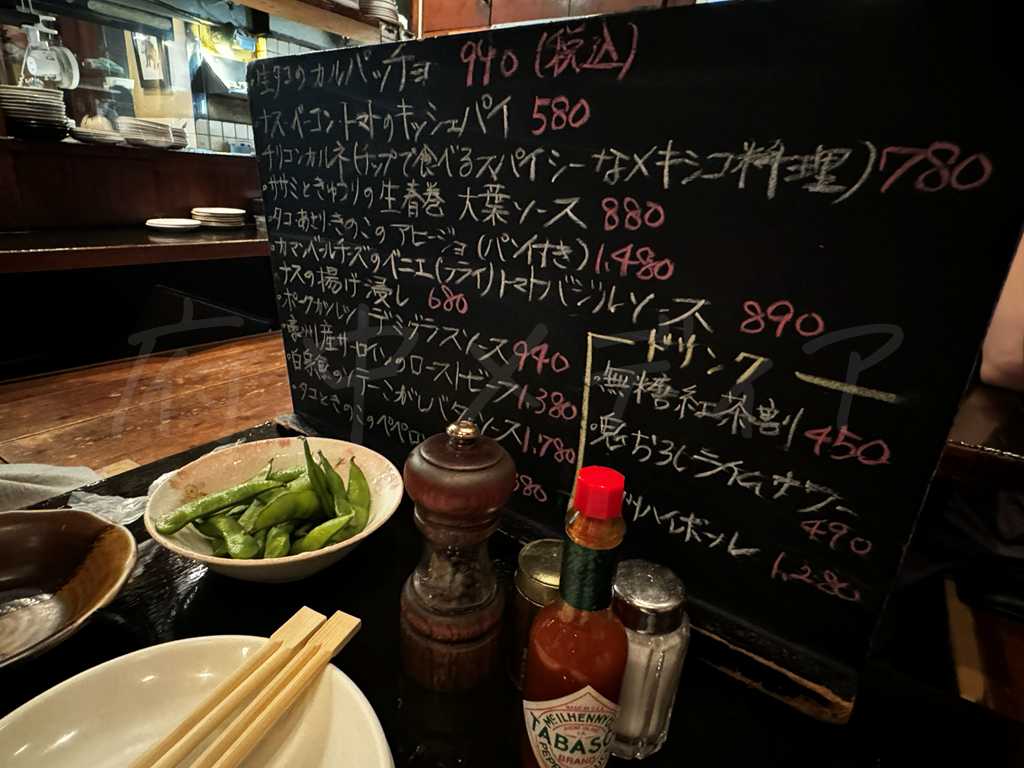 生タコのカルパッチョ 940 (税込)
ナス・ベーコン・トマトのキッシュパイ 580
チリコンカルネ(チップで食べるスパイシーなメキシコ料理) 780
・ササミときゅうりの生春巻 大葉ソース 880
・タコ・あさりきのこのアヒージョ(パン付き) 1,480
・カマンベールチーズのベニエ(フライ)トマトバジルソース 890
・ナスの揚げ浸し 680
・ポークカツレツ デミグラスソース 940
産サーロインのローストビーフ 1,380
・白身魚のソテーこがしバターソース 1,780
・タコときのこのペペロ
ドリンク
・無糖紅茶割 450
・鬼おろしライムサワー 490
ハイボール 1,280
McILHENNY CO
TABASCO
BRAND
PEPPER